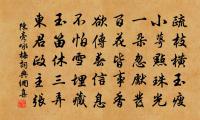 疏枝橫玉瘦
小萼點珠光
一朵忽先變
百花皆後香
欲傳春信息
不怕雪埋藏
玉笛休三弄
東君正主張
陳亮詠梅詞典網集